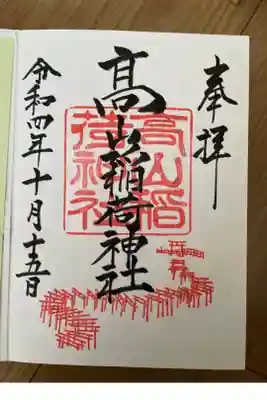 奉拝
高山稲荷神社
高山稲荷神社
令和四年十月十五日